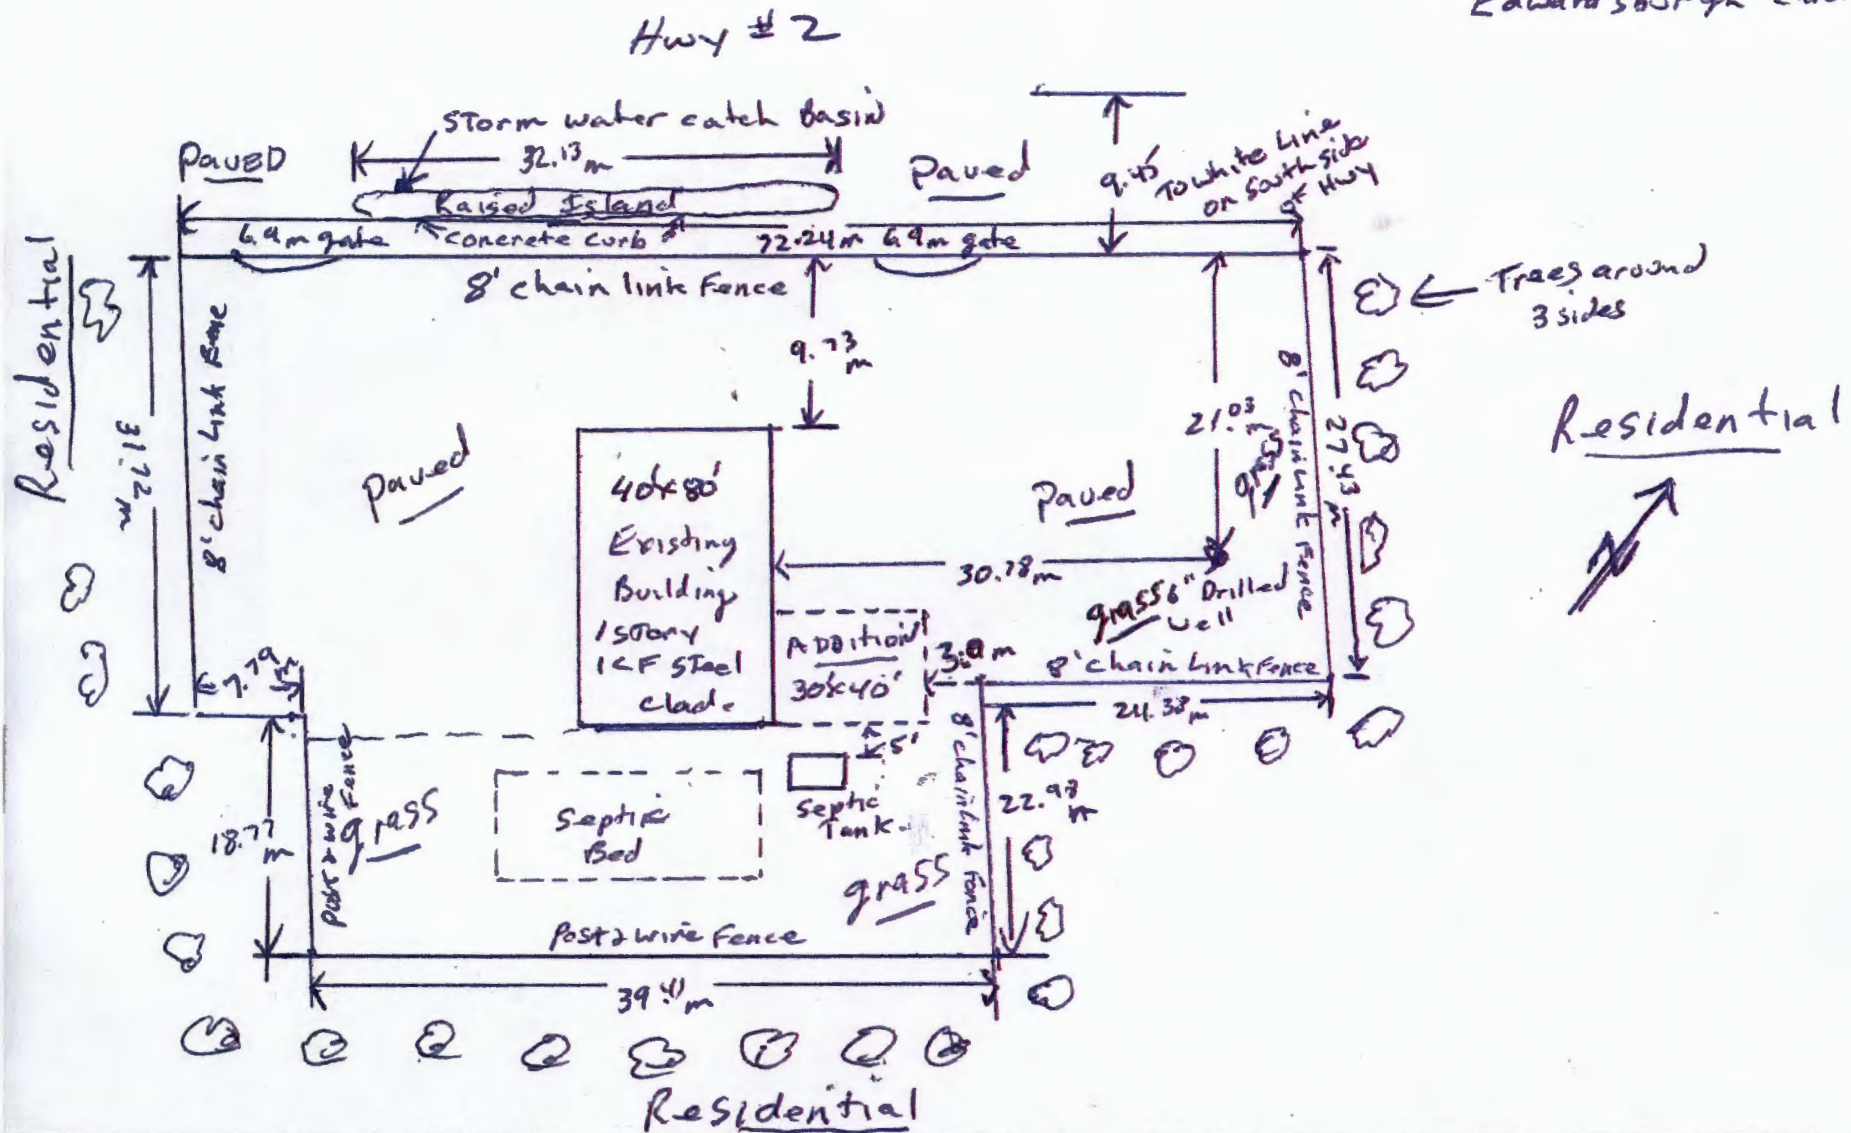 Hwy # 2
Storm water catch Basin
PAVED
32.13 m
Paved
9.45
To white Line
on South side
of Hwy
Raised Island
6.9m gate
concrete curb
72.24m
6.9m gate
8' chain link Fence
Residential
Trees around
3 sides
8' chain Link
31.22 m
9.73 m
21.03 m
grass
8' chain Link Fence
27.43 m
Residential
N
Paved
40'x80'
Existing
Building
1 story
ICF Steel
Clad.
Paved
30.78m
grass
6" Drilled
well
ADDITION
30'x40'
8' chain Link Fence
24.38m
5'
Post & wire
Fence
grass
18.77 m
Septic
Bed
Septic
Tank
8' chain Link Fence
grass
Post & wire Fence
39.41 m
Residential